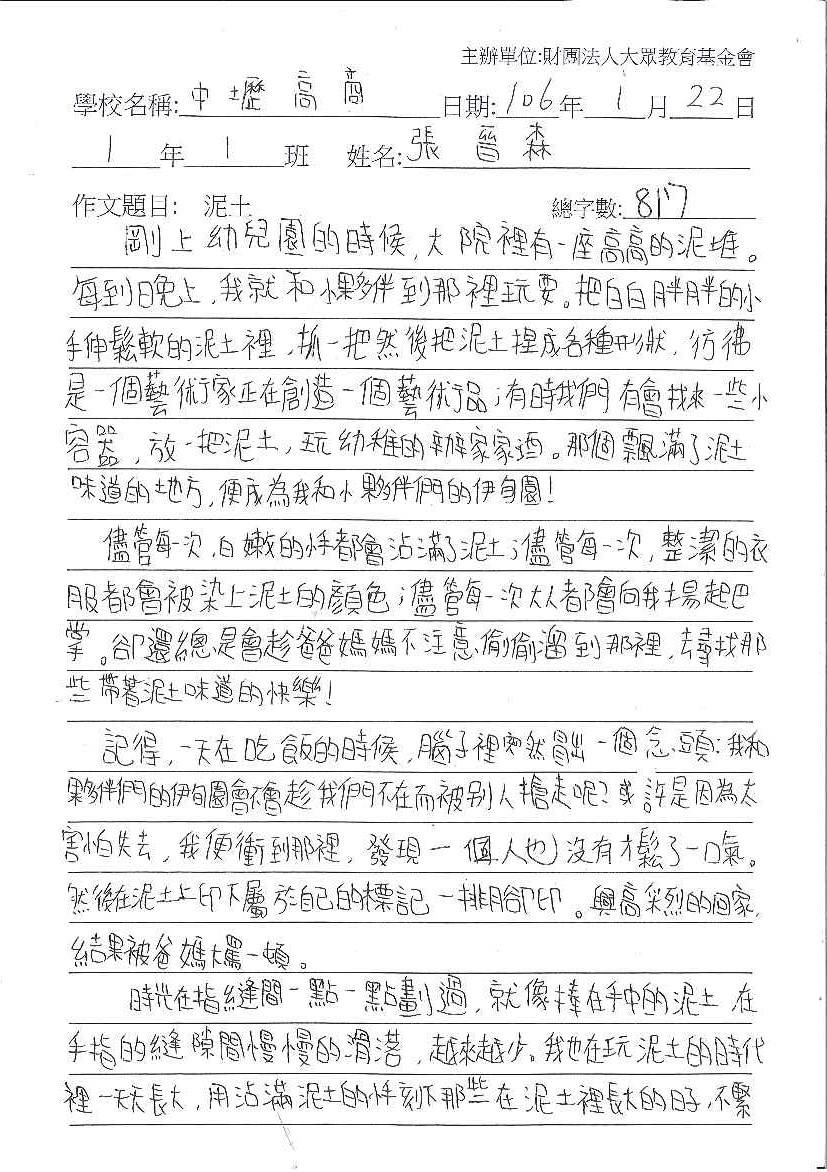 主辦單位:財團法人大眾教育基金會
學校名稱:中壢高商 日期:106年1月22日
1年1班 姓名:張晉森
作文題目: 泥土 總字數:817
剛上幼兒園的時候,大院裡有一座高高的泥堆。
每到晚上,我就和小夥伴到那裡玩耍。把白白胖胖的小
手伸鬆軟的泥土裡,抓一把然後把泥土捏成各種形狀,彷彿
是一個藝術家正在創造一個藝術品;有時我們有會找來一些小
容器,放一把泥土,玩幼稚的辦家家酒。那個飄滿了泥土
味道的地方,便成為我和小夥伴們的伊甸園!
儘管每一次,白嫩的小手都會沾滿了泥土;儘管每一次,整潔的衣
服都會被染上泥土的顏色;儘管每一次大人都會向我揚起巴
掌。卻還總是會趁爸爸媽媽不注意偷偷溜到那裡,去尋找那
些帶著泥土味道的快樂!
記得,一天在吃飯的時候,腦子裡突然冒出一個念頭:我和
夥伴們的伊甸園會不會趁我們不在而被別人搶走呢?或許是因為太
害怕失去,我便衝到那裡,發現一個人也沒有才鬆了一口氣。
然後在泥土上印下屬於自己的標記一排腳印。興高采烈的回家,
結果被爸媽大罵一頓。
時光在指縫間一點一點劃過,就像捧在手中的泥土在
手指的縫隙間慢慢的滑落,越來越少。我也在玩泥土的時代
裡一天天長大,用沾滿泥土的小手刻下那些在泥土裡長大的日子,不緊